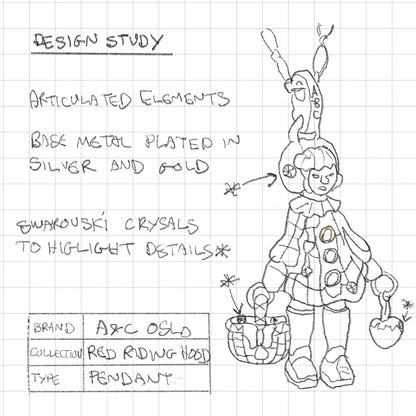 DESIGN STUDY
ARTICULATED ELEMENTS
BASE METAL PLATED IN
SILVER AND GOLD
SWAROVSKI CRYSALS
TO HIGLIGHT DETAILS*
BRAND A&C OSLO
COLLECTION RED RIDING HOOD
TYPE PENDANT
A&C